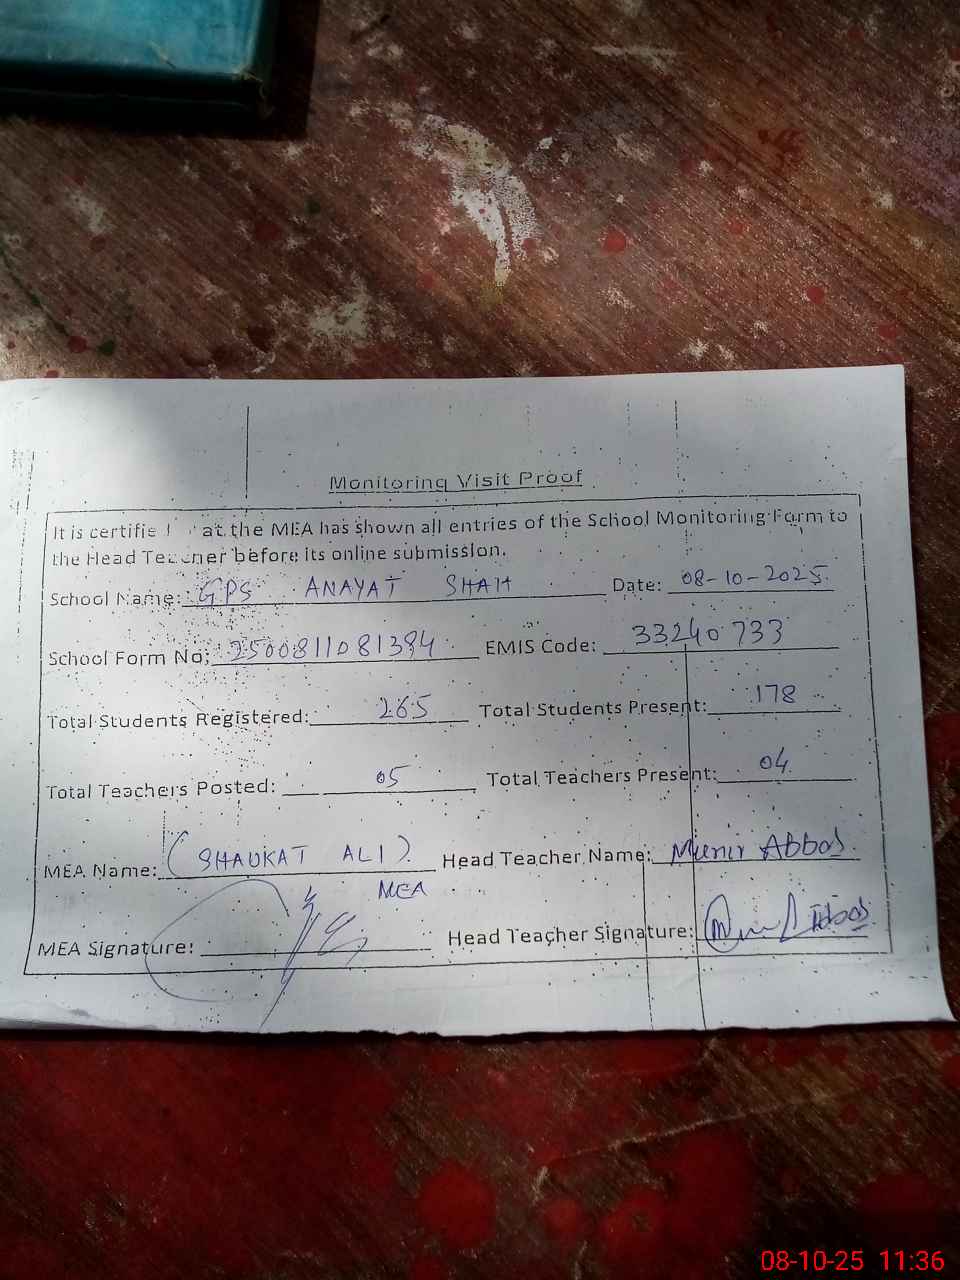 Monitoring Visit Proof
It is certifie at the MEA has shown all entries of the School Monitoring Form to
the Head Teacher before its online submission.
School Name: GPS ANAYAT SHAH Date: 08-10-2025
School Form No: 2500811081384 EMIS Code: 33240733
Total Students Registered: 265 Total Students Present: 178
Total Teachers Posted: 05 Total Teachers Present: 04
MEA Name: (SHAUKAT ALI) Head Teacher Name: Munir Abbas
MEA
MEA Signature: Head Teacher Signature:
08-10-25 11:36